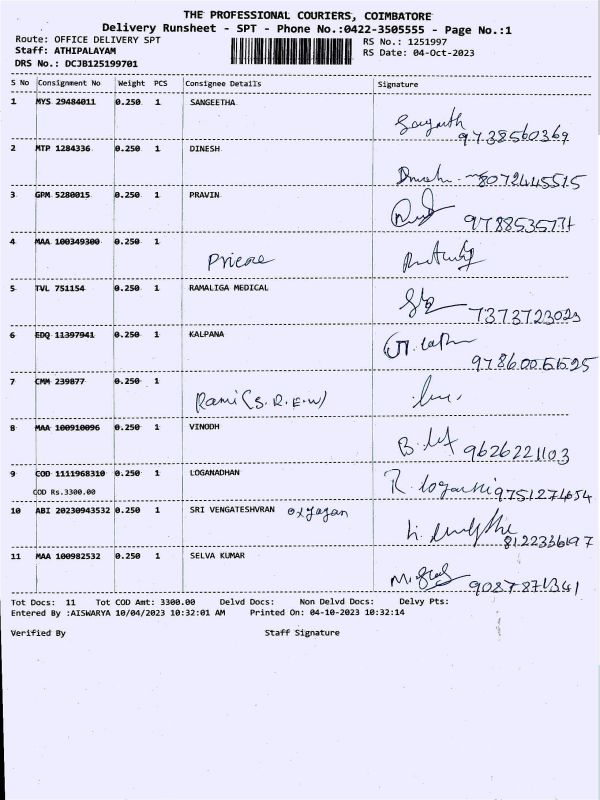 THE PROFESSIONAL COURIERS, COIMBATORE
Delivery Runsheet - SPT - Phone No.:0422-3505555 - Page No.:1
Route: OFFICE DELIVERY SPT RS No.: 1251997
Staff: ATHIPALAYAM RS Date: 04-Oct-2023
DRS No.: DCJB125199701
S No Consignment No Weight PCS Consignee Details Signature
1 MYS 29484011 0.250 1 SANGEETHA
9738560369
2 MTP 1284336 0.250 1 DINESH
8072445515
3 GPM 5280015 0.250 1 PRAVIN
9788535771
4 MAA 100349300 0.250 1
Pricae
5 TVL 751154 0.250 1 RAMALIGA MEDICAL
7373723023
6 EDQ 11397941 0.250 1 KALPANA
7 CMM 239877 0.250 1
Rami (S.R.E.W)
8 MAA 100910096 0.250 1 VINODH
9626221103
9 COD 1111968310 0.250 1 LOGANADHAN
COD Rs.3300.00
9751274654
10 ABI 20230943532 0.250 1 SRI VENGATESHVRAN oxygan
8122336197
11 MAA 100982532 0.250 1 SELVA KUMAR
9087871341
Tot Docs: 11 Tot COD Amt: 3300.00 Delvd Docs: Non Delvd Docs: Delvy Pts:
Entered By :AISWARYA 10/04/2023 10:32:01 AM Printed On: 04-10-2023 10:32:14
Verified By Staff Signature